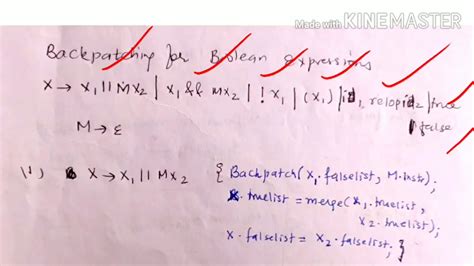 Made with KINEMASTER
Backpatching for Boolean expressions
X → X₁ || MX₂ | X₁ && MX₂ | ! X₁ | (X₁) | id₁ relop id₂ | true
| false
M → ε
(1) X → X₁ || MX₂ { Backpatch (X₁.falselist, M.instr);
X.truelist = merge (X₁.truelist,
X₂.truelist);
X.falselist = X₂.falselist; }